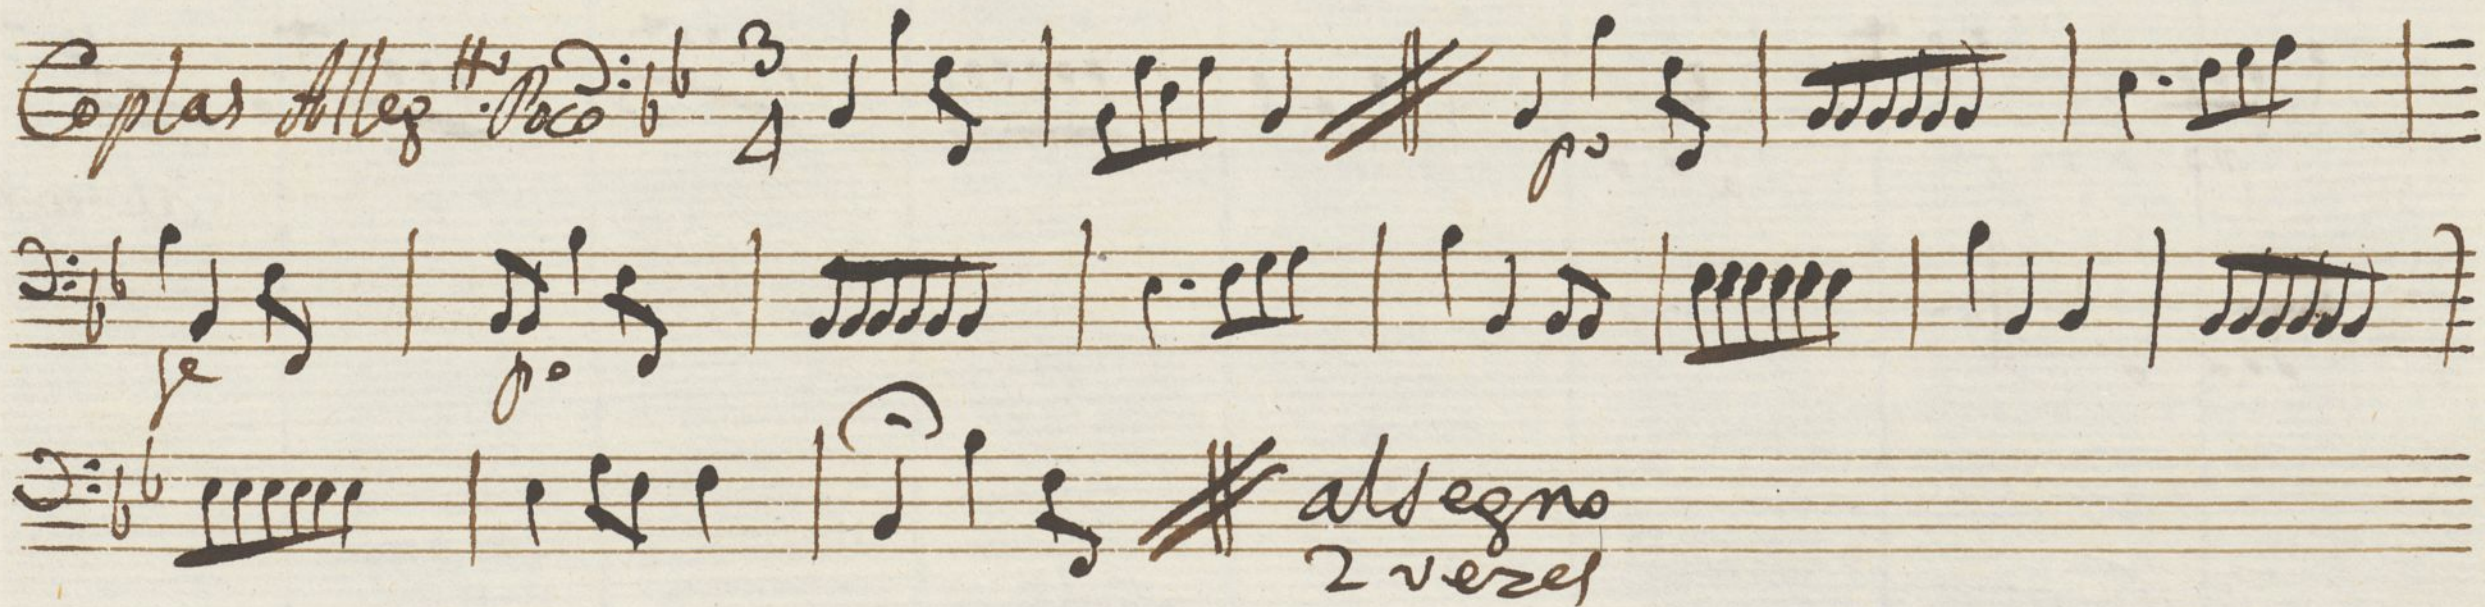 Coplas Alleg.tto Poco 3 4
po
fe po
al segno
2 vezes